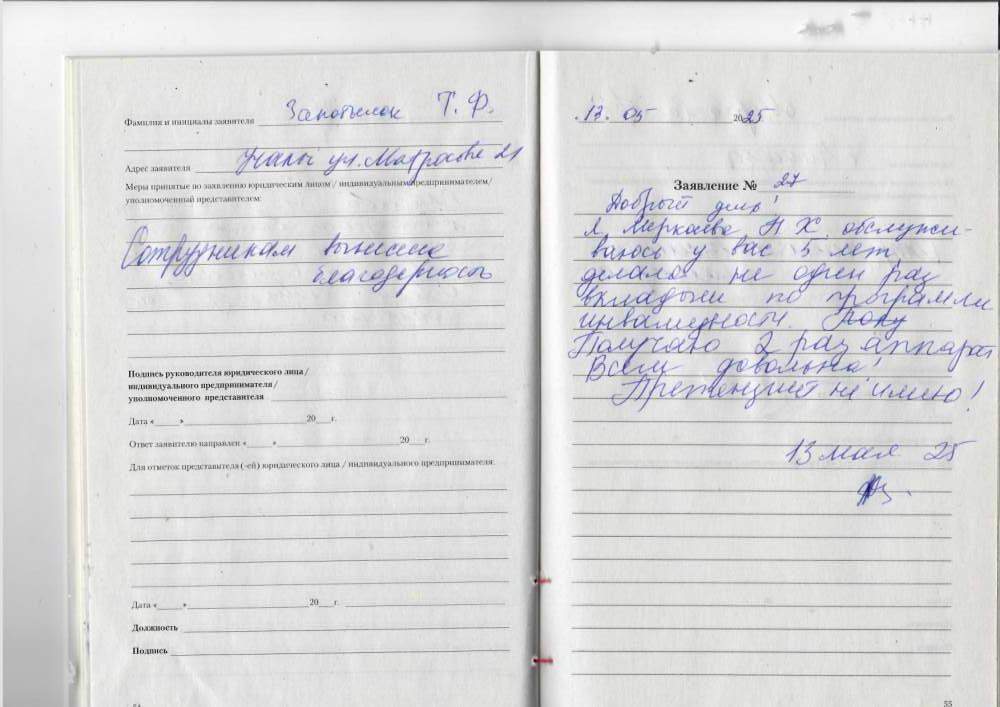 Фамилия и инициалы заявителя Т. Ф.
Адрес заявителя Учалы ул. Матросова 21
Меры принятые по заявлению юридическим лицом / индивидуальным предпринимателем/
уполномоченный представителем:
Сотрудникам вынесена
благодарность
Подпись руководителя юридического лица/
индивидуального предпринимателя/
уполномоченного представителя
Дата « » 20 г.
Ответ заявителю направлен « » 20 г.
Для отметок представителя (-ей) юридического лица / индивидуального предпринимателя:
Дата « » 20 г.
Должность
Подпись
54
13. 05 2025
Заявление № 27
Добрый день!
Я, Н Х обслужи-
ваюсь у вас 5 лет,
делала не один раз
вкладыши по программе
инвалидности.
Получаю 2 раз аппарат
Всем довольна!
Претензий не имею!
13 мая 25
55